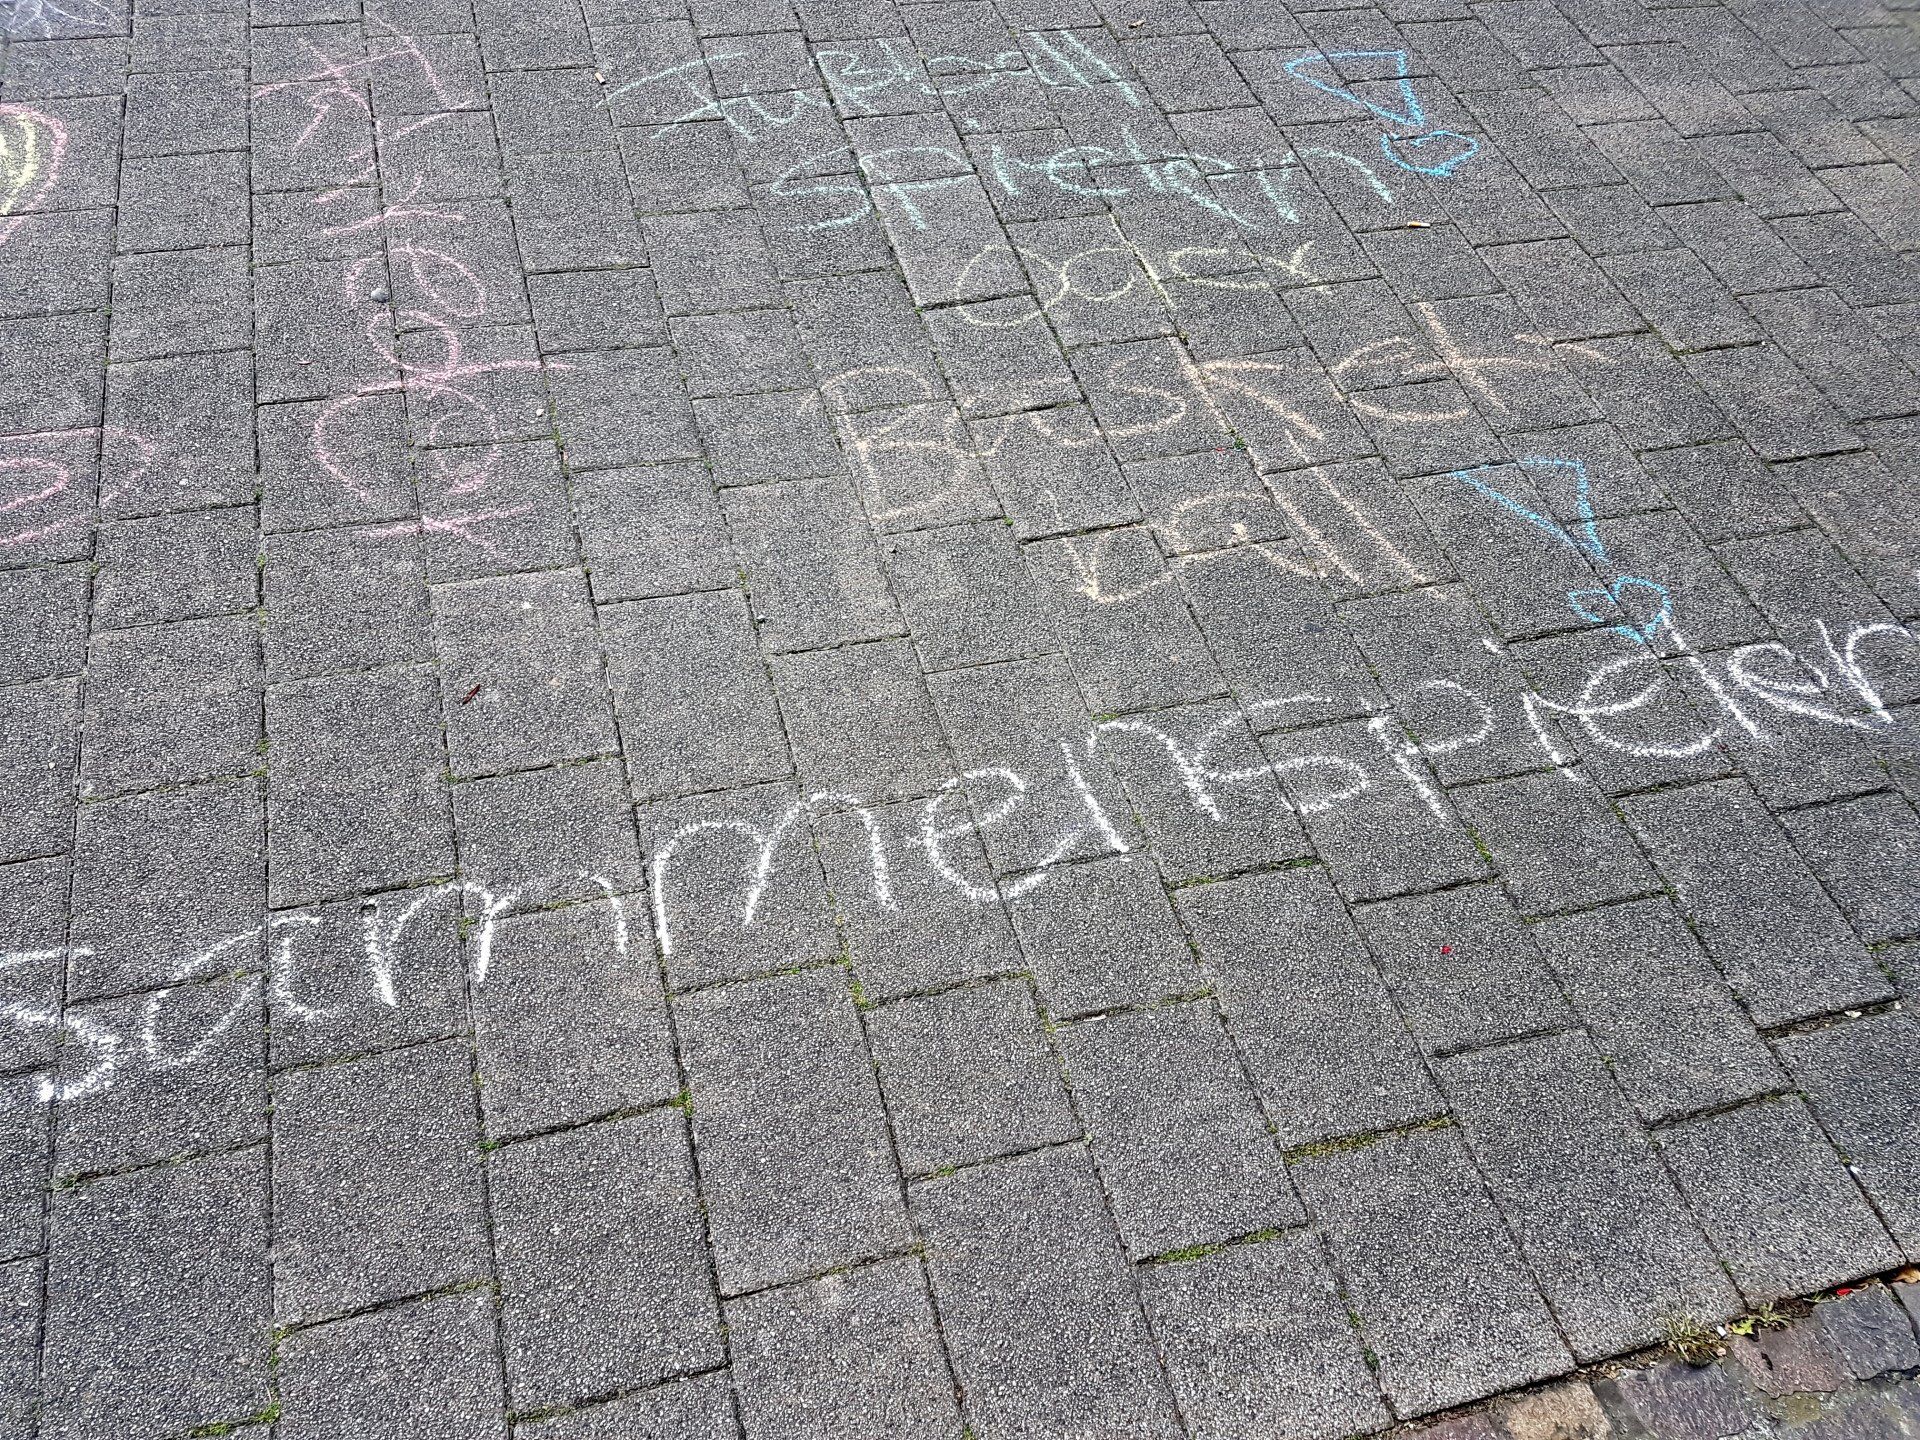 Fußball
spielen !
oder
Basket-
ball !
sammenspielen